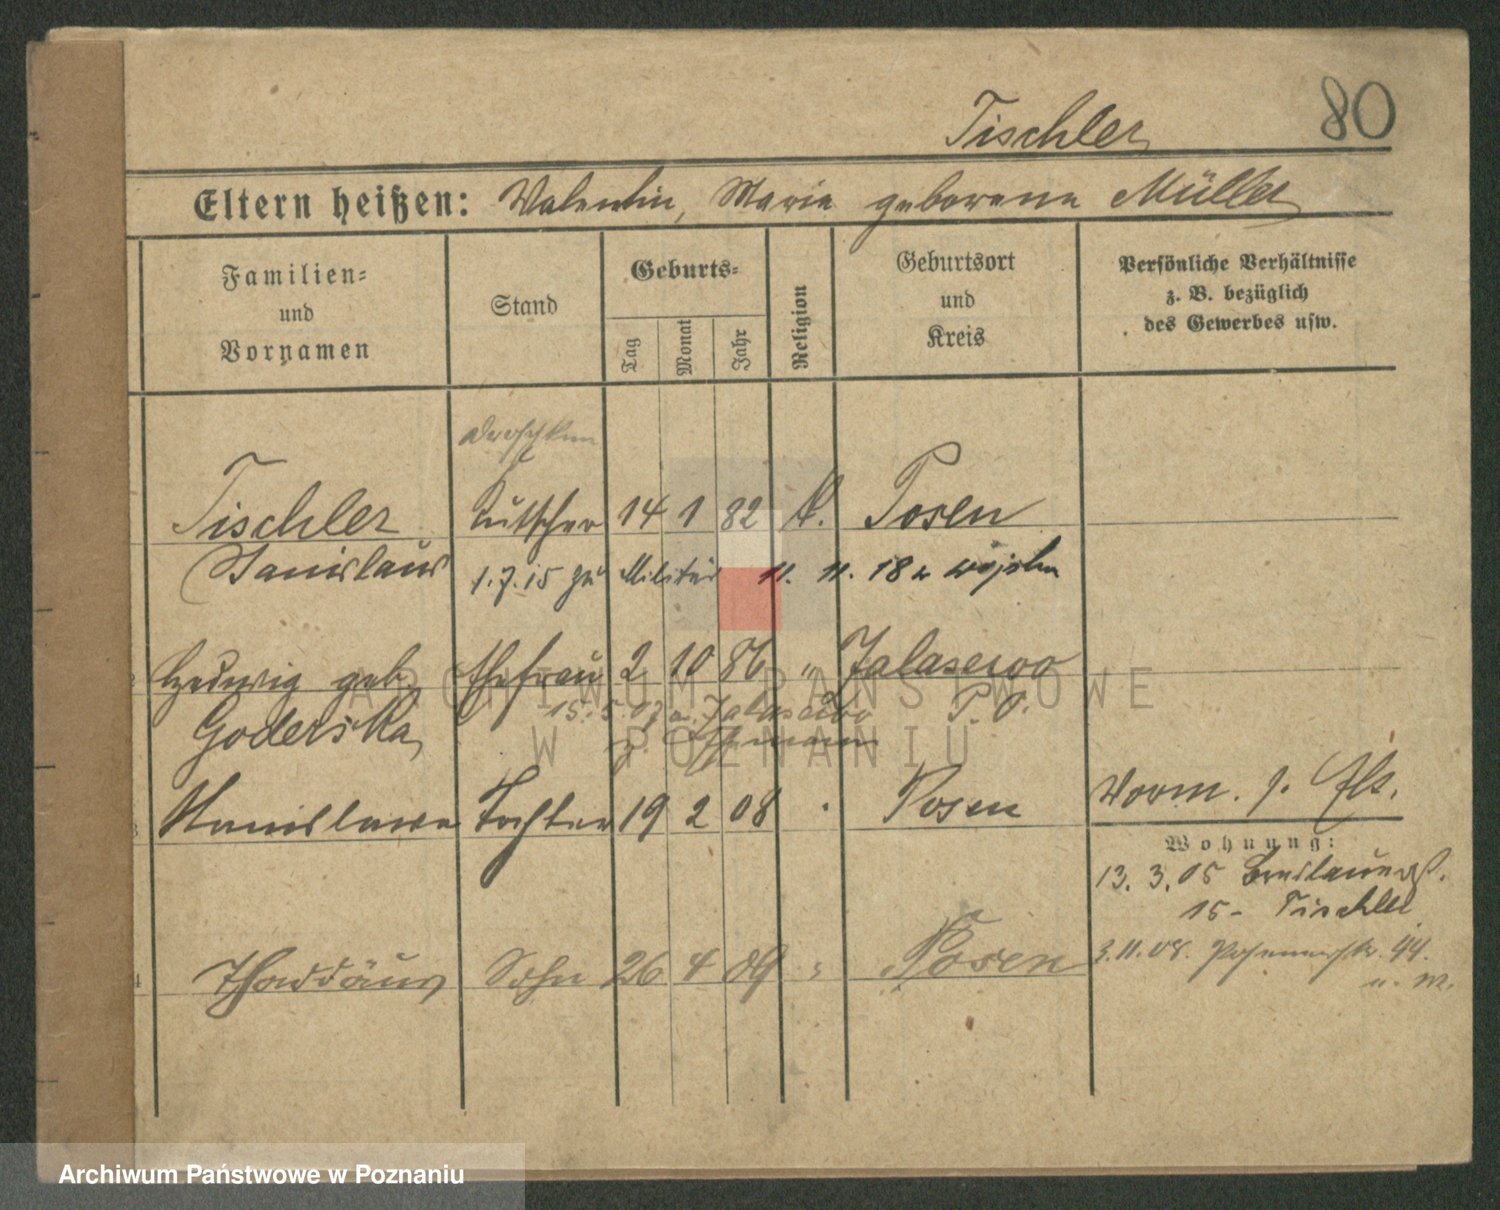 80
Tischler
Eltern heißen: Valentin, Marie geborene Müller
Familien- und Vornamen
Stand
Geburts-
Tag
Monat
Jahr
Religion
Geburtsort und Kreis
Persönliche Verhältnisse z. B. bezüglich des Gewerbes usw.
Droschken
Tischler Kutscher 14 1 82 k. Posen
Stanislaus 1.7.15 zu Militär 11. 11. 18 v
Hedwig geb. Ehefrau 2 10 86 " Jalasewo
Goderska 15.5.07 a. Jalasewo P. O.
Stanislawa Tochter 19 2 08 " Posen
Vorm. f. Fls.
Wohnung:
13. 3. 05 Breslauerst.
15- Tischler
4 Thaddäus Sohn 26 4 09 " Posen
3.11.08. 44.
ARCHIWUM PAŃSTWOWE
W POZNANIU
Archiwum Państwowe w Poznaniu